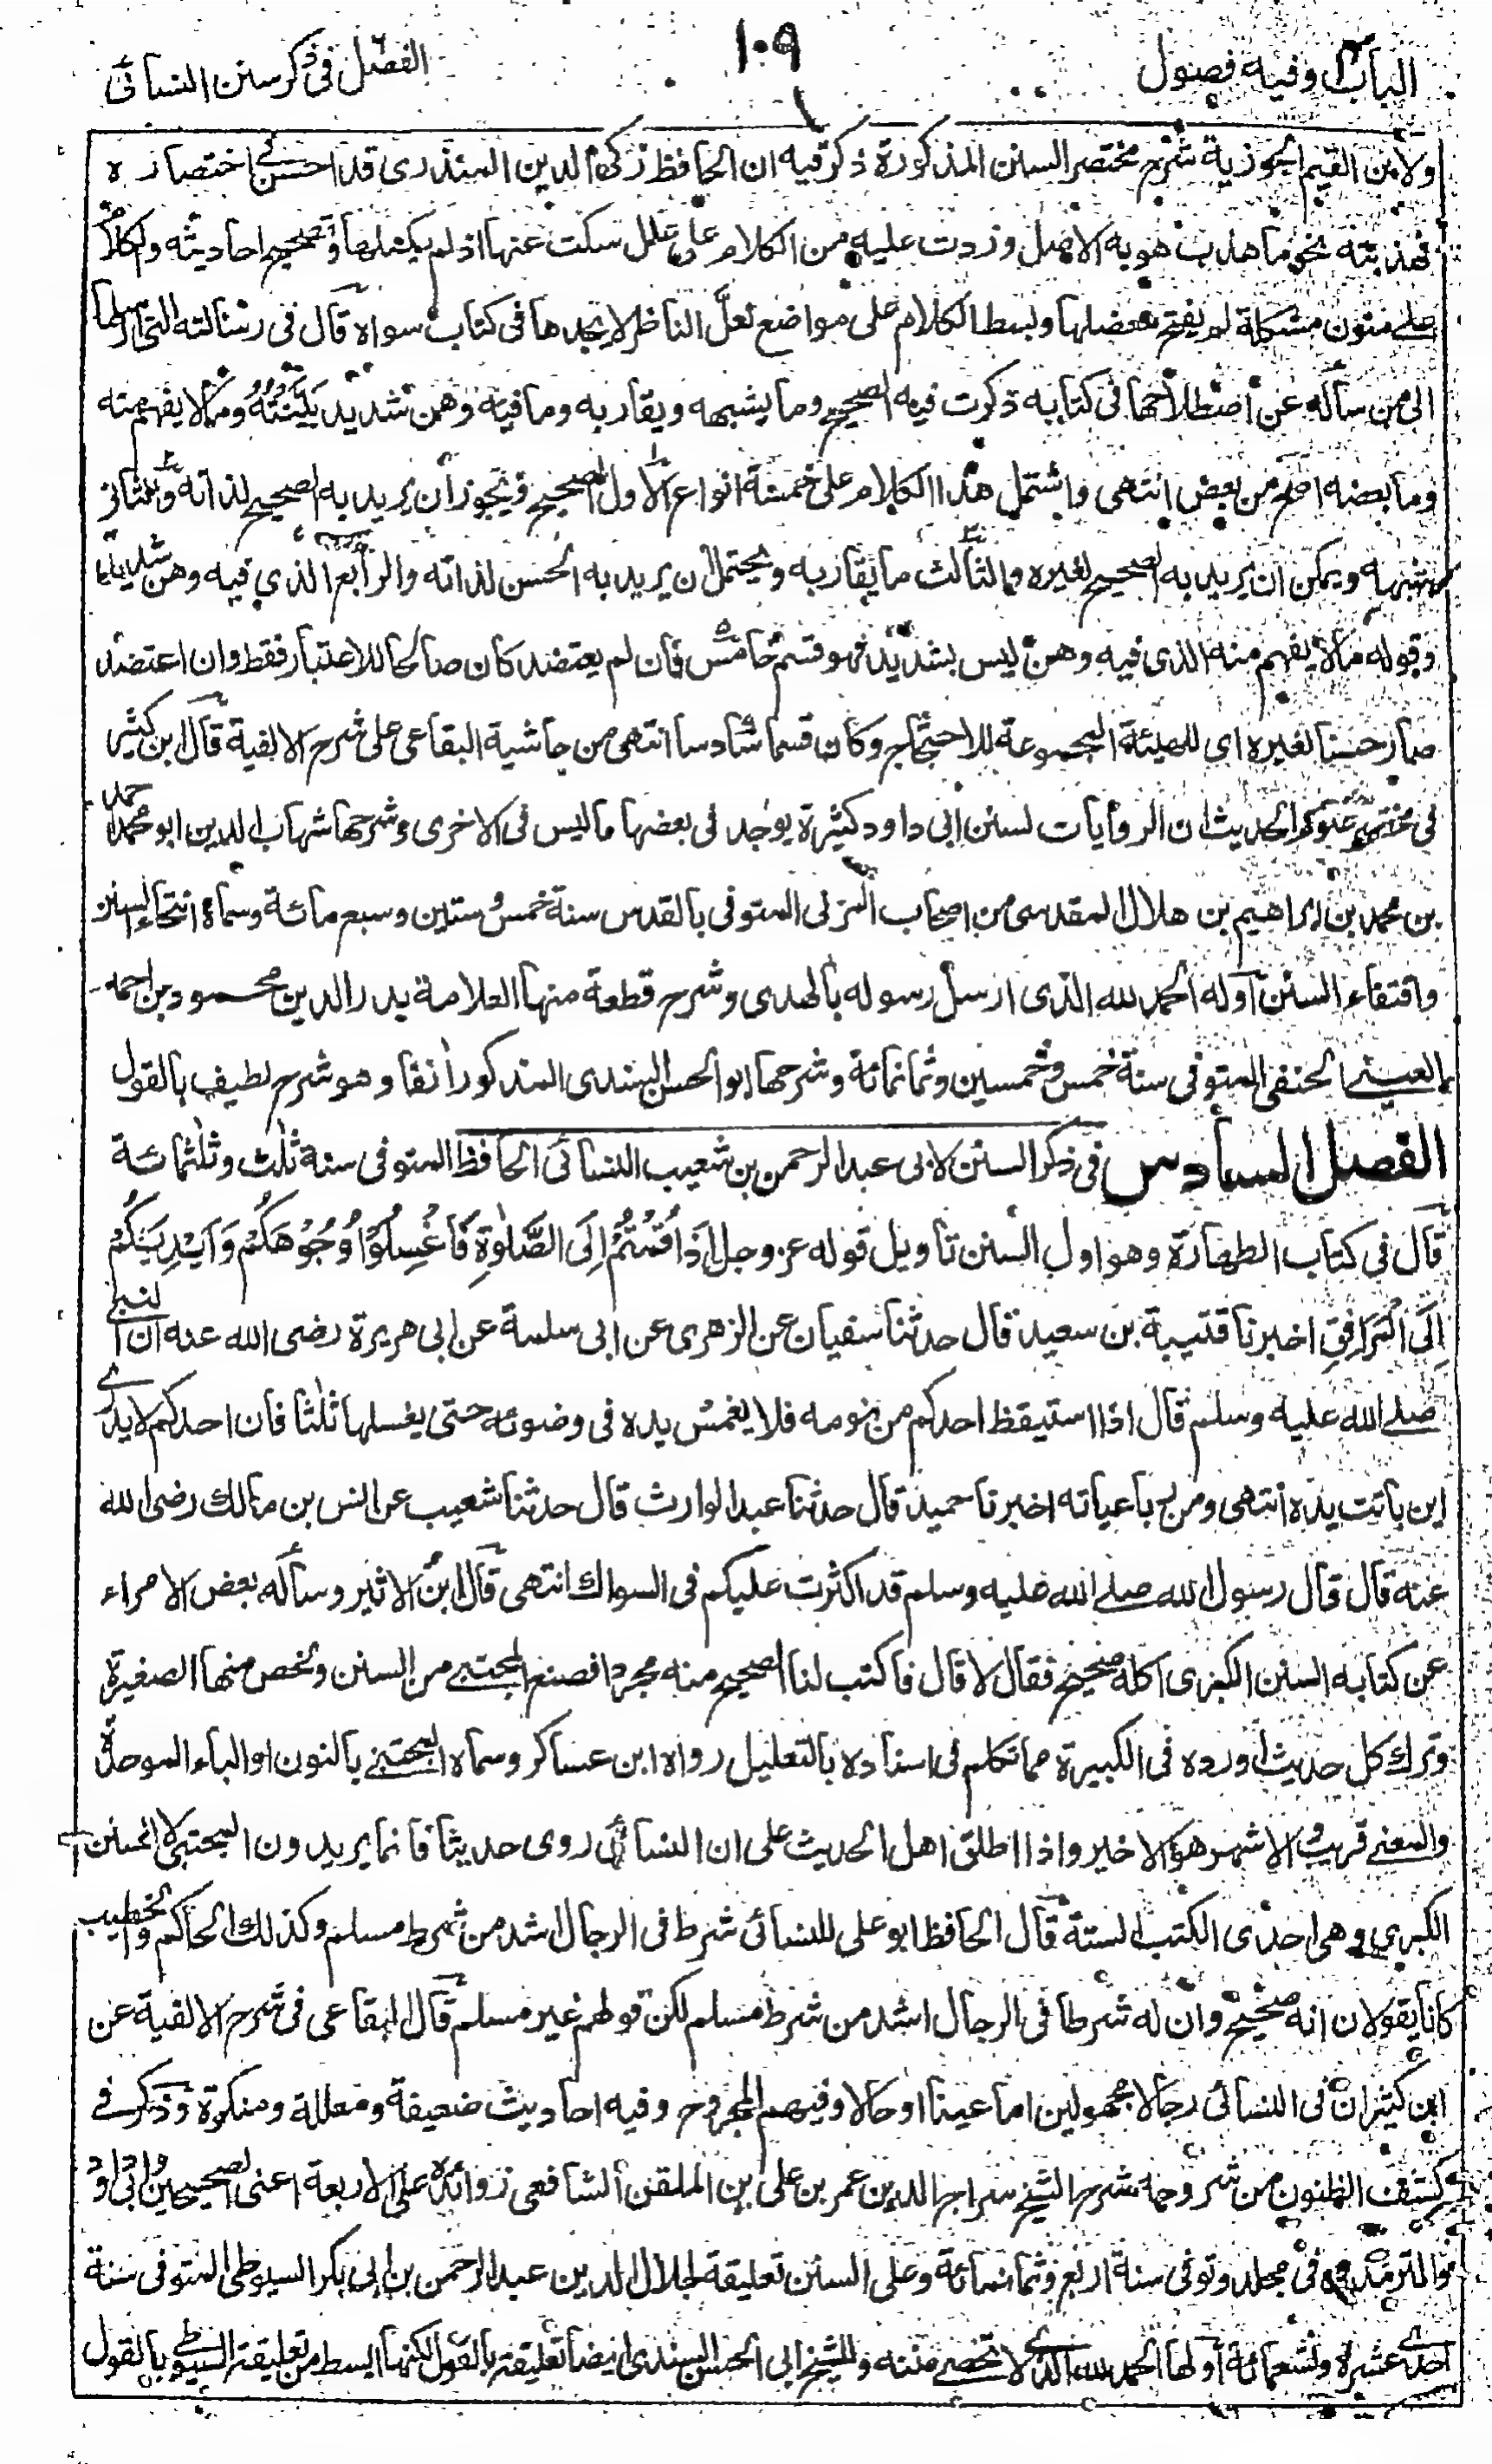 الباب وفيه فصول
١٠٩
الفصل فى ذكر سنن النسائى
ولابن القيم الجوزية شرح مختصر السنن المذكورة ذكر فيه ان الحافظ زكى الدين المنذرى قد احسن فى اختصاره
فهذبته نحو ما هذب هو به الاصل وزدت عليه من الكلام على علل سكت عنها اذ لم يكملها وتصحيح احاديثه والكلام
على متون مشكلة لم يفتح معضلها وبسط الكلام على مواضع لعل الناظر لا يجدها فى كتاب سواه قال فى رسالته التى ارسلها
الى من سأله عن اصطلاحها فى كتابه ذكرت فيه الصحيح وما يشبهه ويقاربه وما فيه وهن شديد بينته وما لا يفهم منه
وما بعضه اصلح من بعض انتهى واشتمل هذا الكلام على خمسة انواع الاول الصحيح فيجوز ان يريد به الصحيح لذاته والثانى
مشبهه ويمكن ان يريد به الصحيح لغيره والثالث ما يقاربه ويحتمل ان يريد به الحسن لذاته والرابع الذى فيه وهن شديد
وقوله ما لا يفهم منه الذى فيه وهن ليس بشديد فهو قسم خامس فان لم يعتضد كان صالحا للاعتبار فقط وان اعتضد
صار حسنا لغيره اى للهيئة المجموعة للاحتجاج وكان قسما سادسا انتهى من حاشية البقاعى على شرح الالفية قال ابن كثير
فى مختصر علوم الحديث ان الروايات لسنن ابى داود كثيرة يوجد فى بعضها ما ليس فى الاخرى وشرحها شهاب الدين ابو محمد احمد
بن محمد بن ابراهيم بن هلال المقدسى من اصحاب المزنى المتوفى بالقدس سنة خمس وستين وسبع مائة وسماه انتحاء السنن
واقتفاء السنن اوله الحمد لله الذى ارسل رسوله بالهدى وشرح قطعة منها العلامة بدر الدين محمود بن احمد
العينى الحنفى المتوفى سنة خمس وخمسين وثمانمائة وشرحها ابو الحسن السندى المذكور انفا وهو شرح لطيف بالقول
الفصل السادس فى ذكر السنن لابى عبد الرحمن بن شعيب النسائى الحافظ المتوفى سنة ثلث وثلثمائة
قال فى كتاب الطهارة وهو اول السنن تاويل قوله عز وجل اِذَا قُمْتُمْ اِلَى الصَّلٰوةِ فَاغْسِلُوْا وُجُوْهَكُمْ وَاَيْدِيَكُمْ
اِلَى الْمَرَافِقِ اخبرنا قتيبة بن سعيد قال حدثنا سفيان عن الزهرى عن ابى سلمة عن ابى هريرة رضى الله عنه ان النبى
صلى الله عليه وسلم قال اذا استيقظ احدكم من نومه فلا يغمس يده فى وضوئه حتى يغسلها ثلثا فان احدكم لا يدرى
اين باتت يده انتهى ومن رباعياته اخبرنا حميد قال حدثنا عبد الوارث قال حدثنا شعيب عن انس بن مالك رضى الله
عنه قال قال رسول الله صلى الله عليه وسلم قد اكثرت عليكم فى السواك انتهى قال ابن الاثير وسأله بعض الامراء
عن كتابه السنن الكبرى اكله صحيح فقال لا قال فاكتب لنا الصحيح منه مجردا فصنع المجتبى من السنن ولخص منها الصغيرة
وترك كل حديث اورده فى الكبيرة مما تكلم فى اسناده بالتعليل رواه ابن عساكر وسماه المجتنى بالنون او الباء الموحدة
والمعنى قريب والاشهر هو الاخير واذا اطلق اهل الحديث على ان النسائى روى حديثا فانما يريدون المجتبى لا السنن
الكبرى وهى احدى الكتب الستة قال الحافظ ابو على للنسائى شرط فى الرجال اشد من شرط مسلم وكذلك الحاكم والخطيب
كانا يقولان انه صحيح وان له شرطا فى الرجال اشد من شرط مسلم لكن قولهم غير مسلم قال البقاعى فى شرح الالفية عن
ابن كثير ان فى النسائى رجالا مجهولين اما عينا او حالا وفيهم المجروح وفيه احاديث ضعيفة ومعللة ومنكرة وذكر فى
كشف الظنون من شروحه شرح الشيخ سراج الدين عمر بن على بن الملقن الشافعى زوائده على الاربعة اعنى الصحيحين وابى داود
والترمذى فى مجلد وتوفى سنة اربع وثمانمائة وعلى السنن تعليقة لجلال الدين عبد الرحمن بن ابى بكر السيوطى المتوفى سنة
احدى عشرة وتسعمائة اولها الحمد لله الذى لا تحصى مننه وللشيخ ابى الحسن السندى ايضا تعليقة بالقول لكنها ابسط من تعليقة السيوطى بالقول